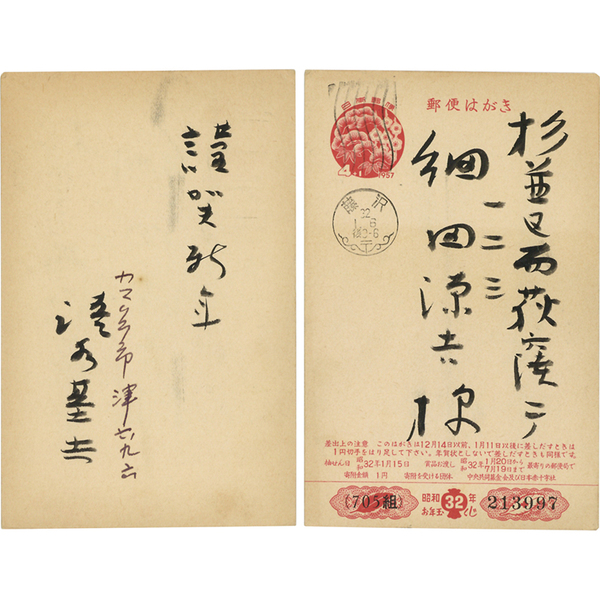 謹賀新年
カマクラ市津六九六
清水基吉
郵便はがき
日本郵便
4+1
1957
藤沢
32
杉並区西荻窪二ノ
一二三
細田源吉様
差出上の注意 このはがきは12月14日以前、1月11日以後に差しだすときは
1円切手をはり足して下さい。年賀状としないで差しだすときも同様です。
抽せん日 昭和32年1月15日 賞品お渡し 昭和32年1月20日から7月19日まで 最寄りの郵便局で
寄附金額 1円 寄附を受ける団体 中央共同募金会及び日本赤十字社
(705組)
昭和32年
お年玉くじ
213997